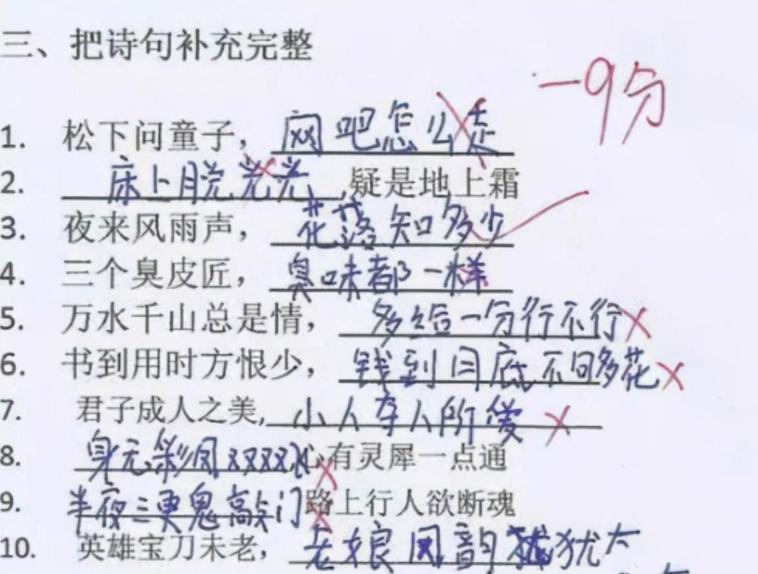 三、把诗句补充完整
-9分
1. 松下问童子，网吧怎么走
2. 床上脱光光,疑是地上霜
3. 夜来风雨声，花落知多少
4. 三个臭皮匠，臭味都一样
5. 万水千山总是情，多给一分行不行
6. 书到用时方恨少，钱到月底不够花
7. 君子成人之美,小人夺人所爱
8. 身无彩凤XXXX,心有灵犀一点通
9. 半夜三更鬼敲门路上行人欲断魂
10. 英雄宝刀未老，老娘风韵犹